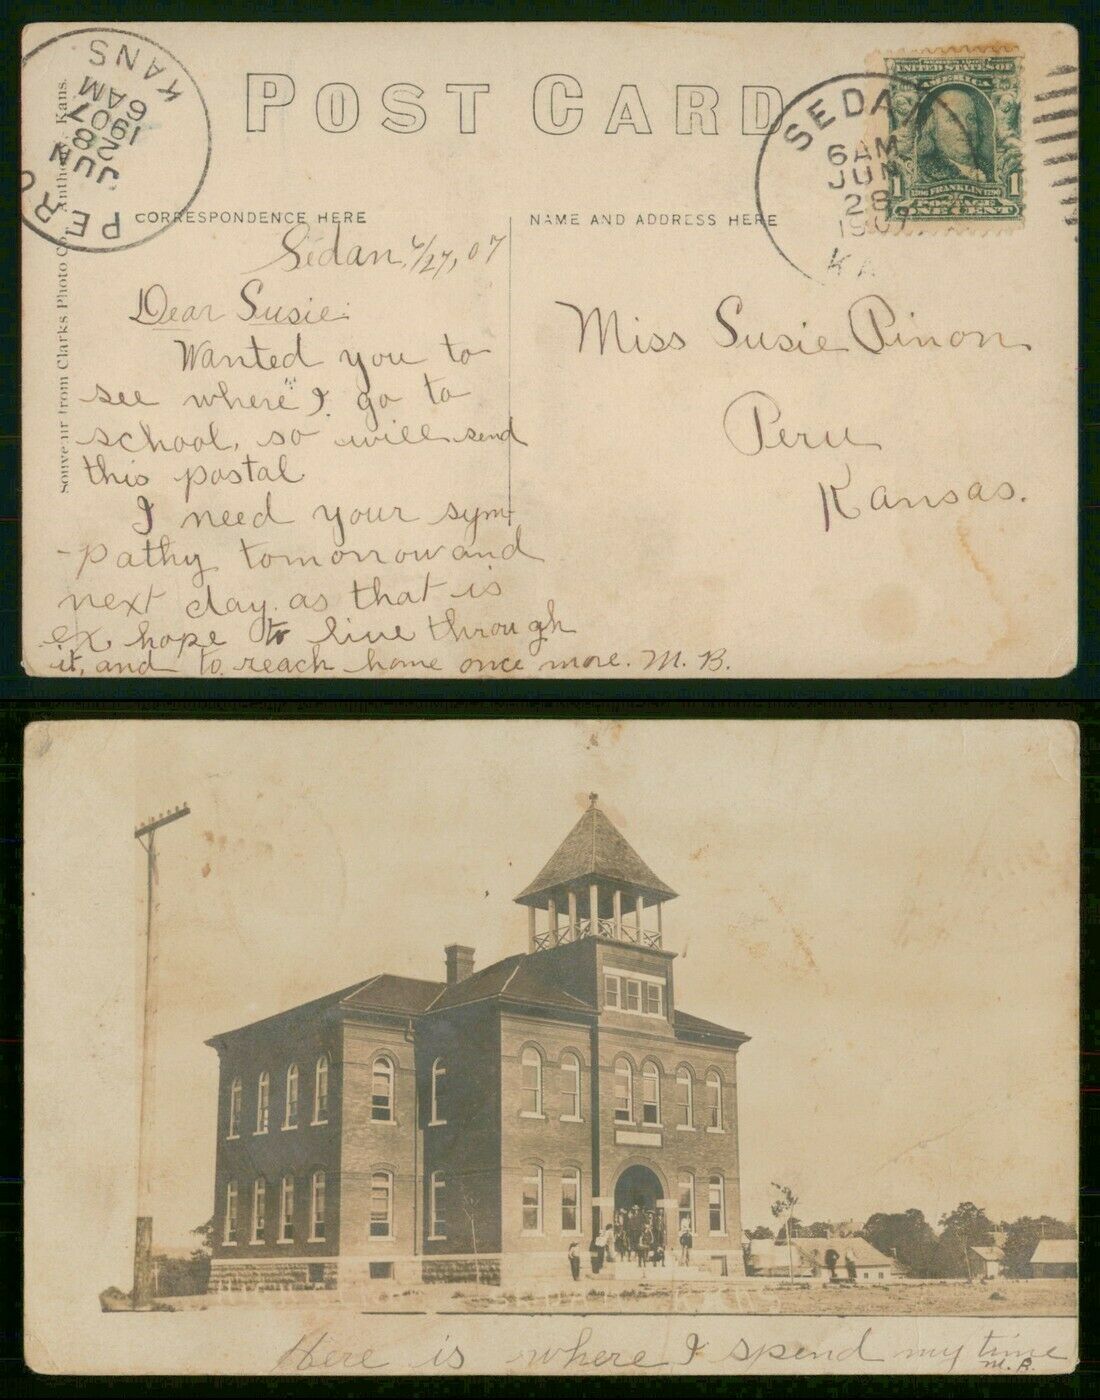 POST CARD
PERU
JUN
28
6AM
1907
KANS
SEDAN
6AM
JUN
28
1907
KA
UNITED STATES OF
FRANKLIN
POSTAGE
1 1
ONE CENT
Souvenir from Clarks Photo Co. Anthony, Kans.
CORRESPONDENCE HERE
NAME AND ADDRESS HERE
Sedan, 6/27, 07
Dear Susie:
Wanted you to
see "where" I go to
school, so will send
this postal
I need your sym
-pathy tomorrow and
next day, as that is
ex. hope to live through
it, and to reach home once more. M. B.
Miss Susie Pinon
Peru
Kansas.
Here is where I spend my time
M. B.